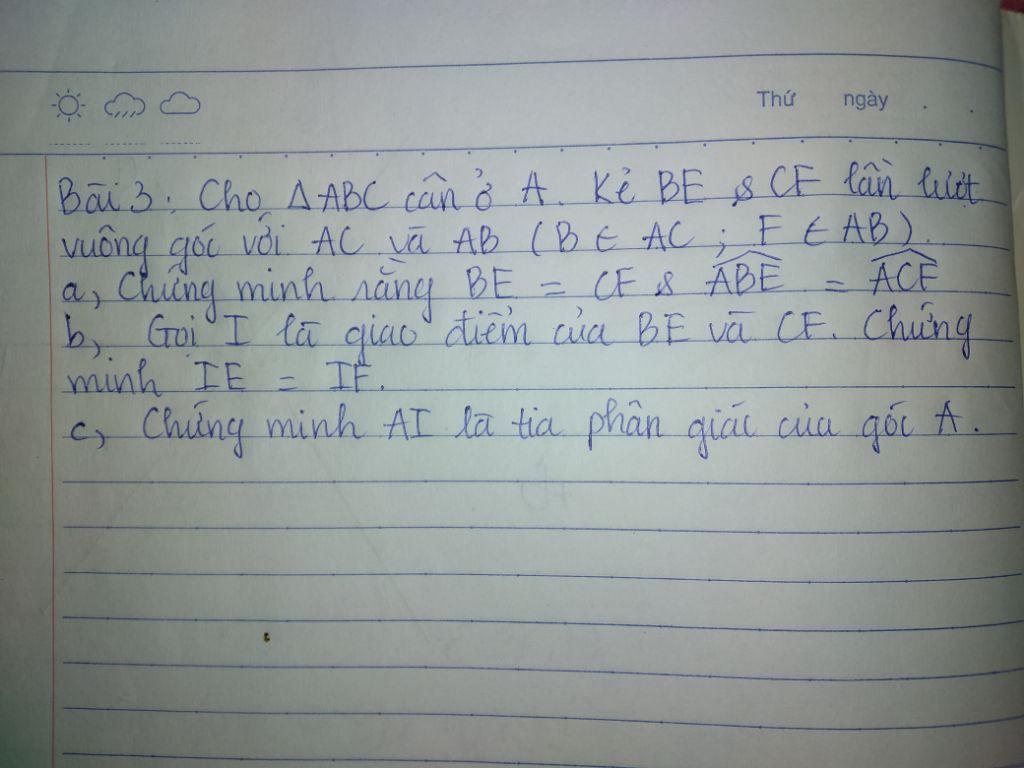 Thứ ngày . .
Bài 3: Cho ΔABC cân ở A. Kẻ BE & CF lần lượt
vuông góc với AC và AB (B ∈ AC ; F ∈ AB).
a, Chứng minh rằng BE = CF & \widehat{ABE} = \widehat{ACF}
b, Gọi I là giao điểm của BE và CF. Chứng
minh IE = IF.
c, Chứng minh AI là tia phân giác của góc A.